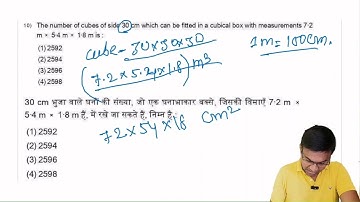 10) The number of cubes of side 30 cm which can be fitted in a cubical box with measurements 7·2
m × 5·4 m × 1·8 m is :
(1) 2592
(2) 2594
(3) 2596
(4) 2598
cube - 30×30×30
(7.2 × 5.4 × 1.8) m³
1m = 100cm.
30 cm भुजा वाले घनों की संख्या, जो एक घनाभाकार बक्से, जिसकी विमाएँ 7·2 m ×
5·4 m × 1·8 m हैं, में रखे जा सकते हैं, निम्न है :
72×54×18 cm²
(1) 2592
(2) 2594
(3) 2596
(4) 2598